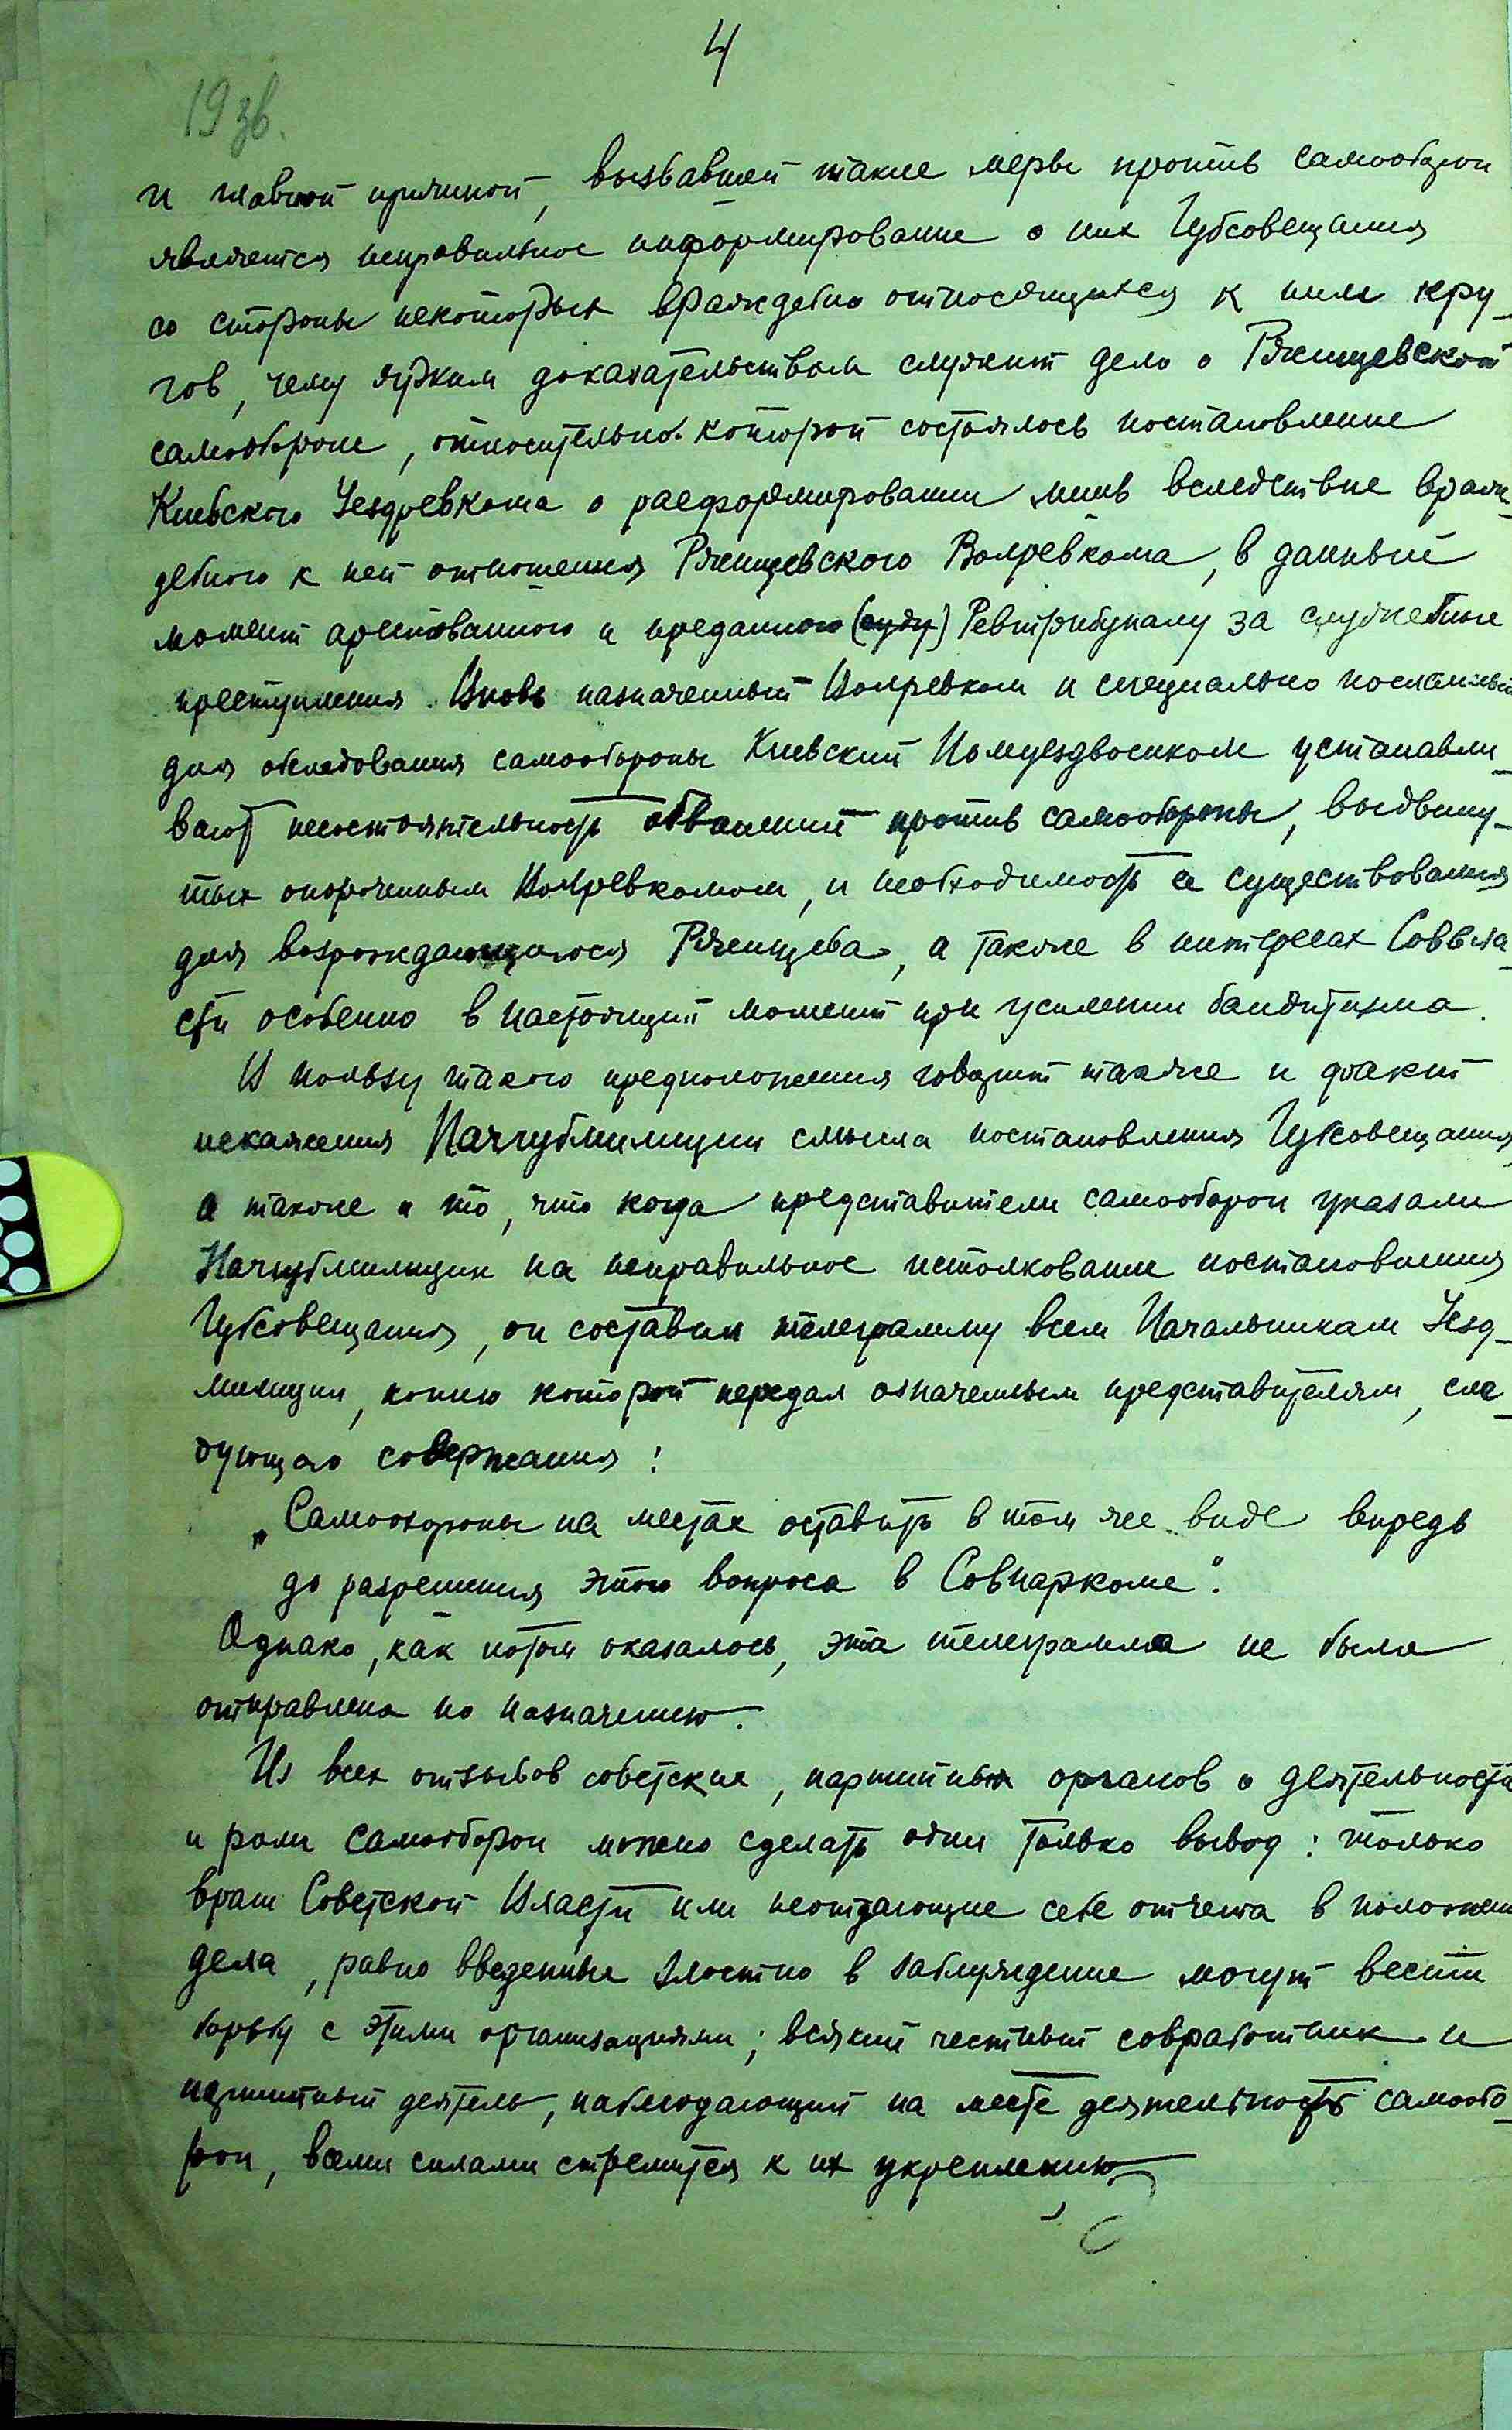 4
19 зв.
и главной причиной, вызвавшей такие меры против самооборон
является неправильное информирование о них Губсовещания
со стороны некоторых враждебно относящихся к ним кру-
гов, чему ярким доказательством служит дело о Ржищевской
самообороне, относительно которой состоялось постановление
Киевского Уездревкома о расформировании лишь вследствие враж-
дебного к ней отношения Ржищевского Волревкома, в данный
момент арестованного и преданного (суду) Ревтрибуналу за служебные
преступления. Вновь назначенный Волревком и специально посланный
для обследования самообороны Киевский Помуездвоенком устанавли-
вают несостоятельность обвинений против самообороны, выдвину-
тых опороченным Волревкомом, и необходимость ее существования
для возрождающегося Ржищева, а также в интересах Соввла-
сти особенно в настоящий момент при усилении бандитизма.
В пользу такого предположения говорит также и факт
искажения Начгубмилиции смысла постановления Губсовещания,
а также и то, что когда представители самооборон указали
Начгубмилиции на неправильное истолкование постановления
Губсовещания, он составил телеграмму всем Начальникам Уезд-
милиции, копию которой передал означенным представителям, сле-
дующего содержания:
„Самообороны на местах оставить в том же виде впредь
до разрешения этого вопроса в Совнаркоме".
Однако, как потом оказалось, эта телеграмма не была
отправлена по назначению.
Из всех отзывов советских, партийных органов о деятельности
и роли самооборон можно сделать один только вывод: только
враги Советской Власти или неотдающие себе отчета в положении
дела, равно введенные злостно в заблуждение могут вести
борьбу с этими организациями; всякий честный совработник и
партийный деятель, наблюдающий на месте деятельность самообо-
рон, всеми силами стремится к их укреплению